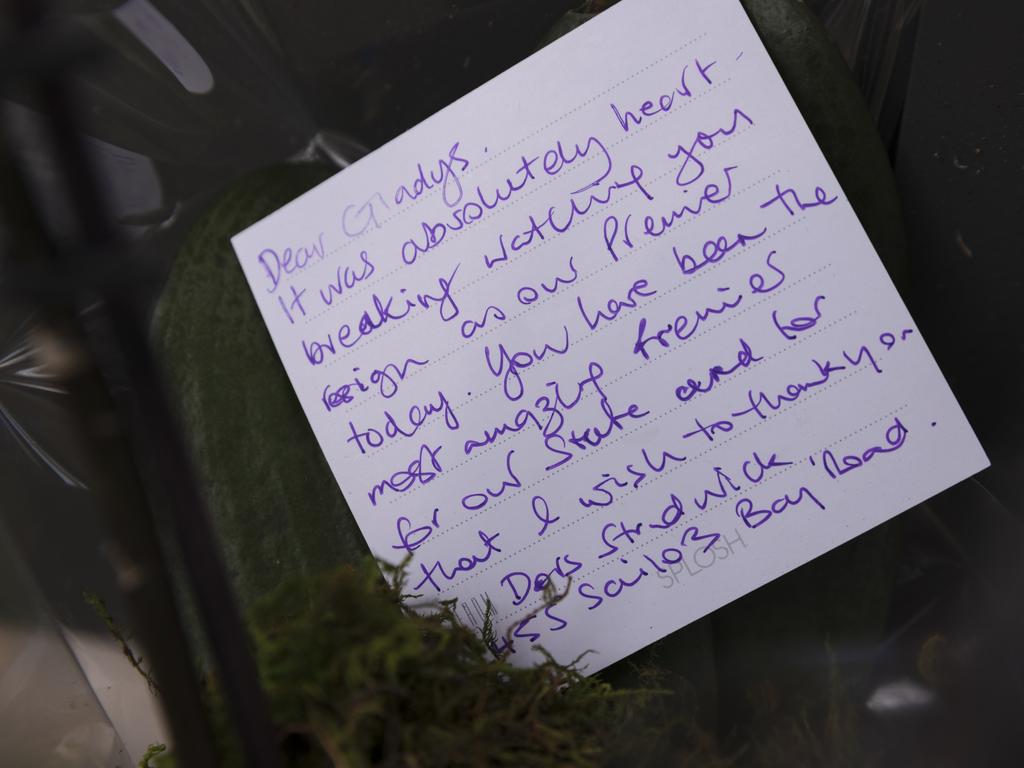 Dear Gladys.
It was absolutely heart-
breaking watching you
resign as our Premier
today. You have been the
most amazing Premier
for our State and for
that I wish to thank you
Strudwick
455 Sailors Bay Road.
SPLOSH